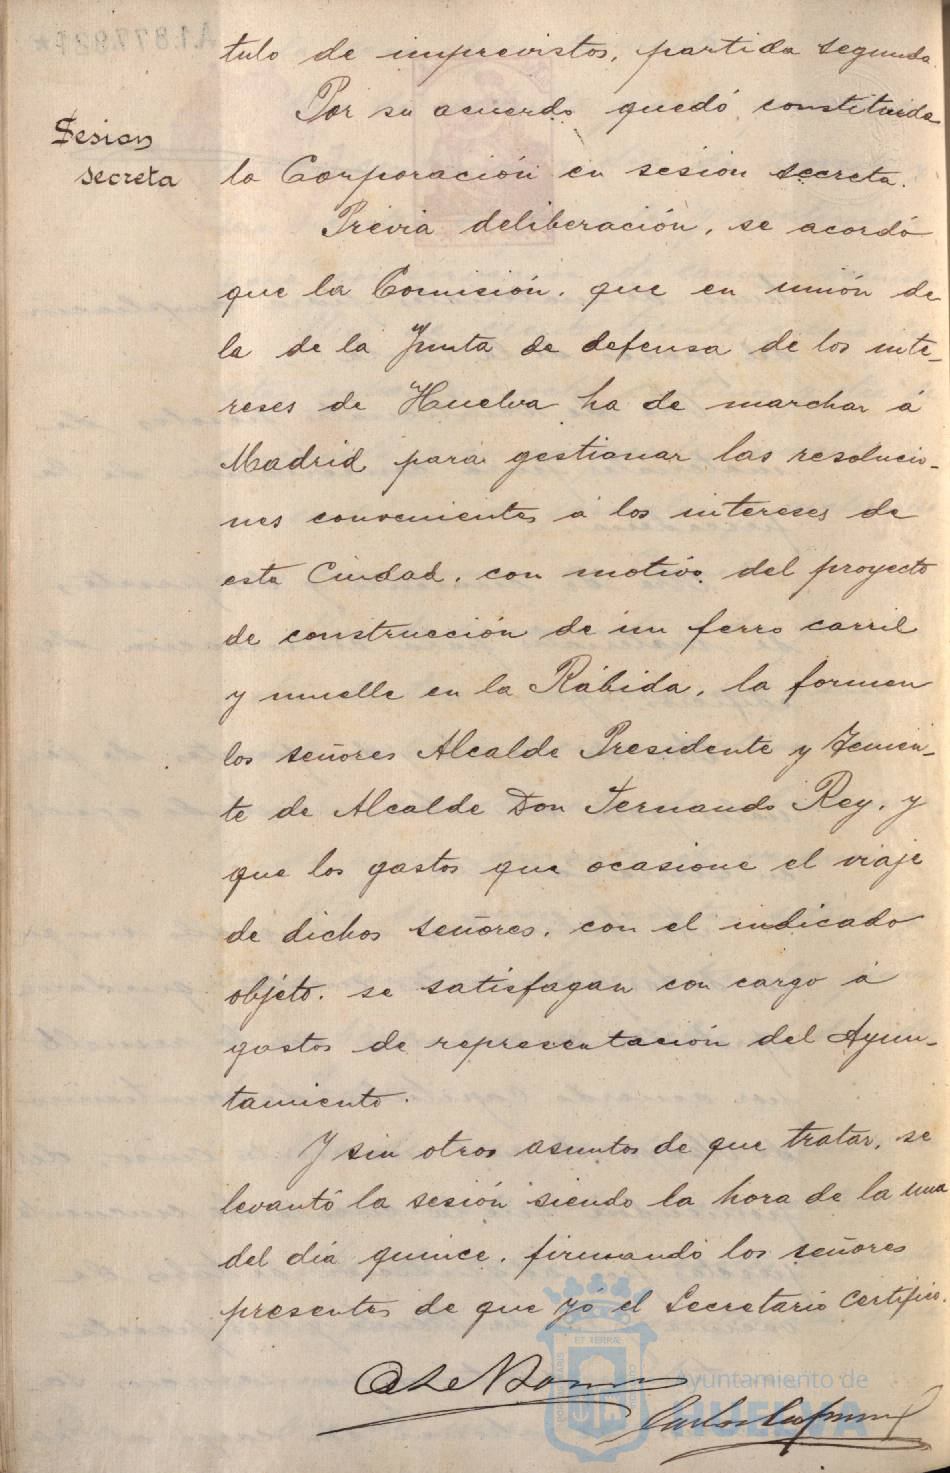 tulo de imprevistos, partida segunda.
Por su acuerdo quedó constituida
Sesion
secreta
la Corporación en sesion secreta.
Previa deliberación, se acordó
que la Comisión, que en unión de
la de la Junta de defensa de los inte-
reses de Huelva ha de marchar á
Madrid para gestionar las resolucio-
nes convenientes á los intereses de
esta Ciudad, con motivo del proyecto
de construcción de un ferro carril
y muelle en la Rábida, la formen
los señores Alcalde Presidente y Tenien-
te de Alcalde Don Fernando Rey, y
que los gastos que ocasione el viaje
de dichos señores, con el indicado
objeto, se satisfagan con cargo á
gastos de representación del Ayun-
tamiento.
Y sin otros asuntos de que tratar, se
levantó la sesión siendo la hora de la una
del día quince, firmando los señores
presentes de que yó el Secretario certifico.
Ayuntamiento de
HUELVA
Carlos